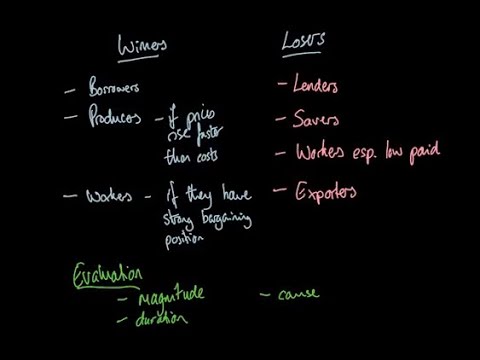 Winners
- Borrowers
- Producers - if prices
rise faster
than costs
- Workers - if they have
strong bargaining
position
Losers
- Lenders
- Savers
- Workers esp. low paid
- Exporters
Evaluation
- magnitude
- duration
- cause